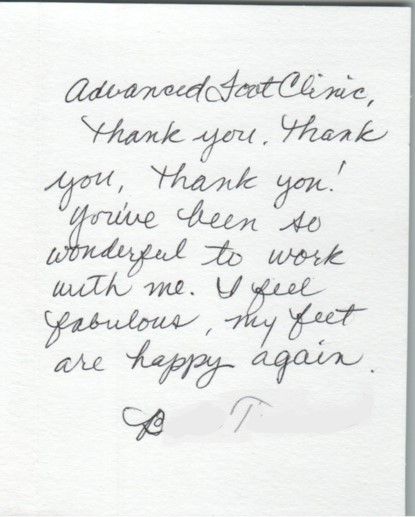 Advanced Foot Clinic,
Thank you. Thank
you, Thank you!
You've been so
wonderful to work
with me. I feel
fabulous, my feet
are happy again.
B T